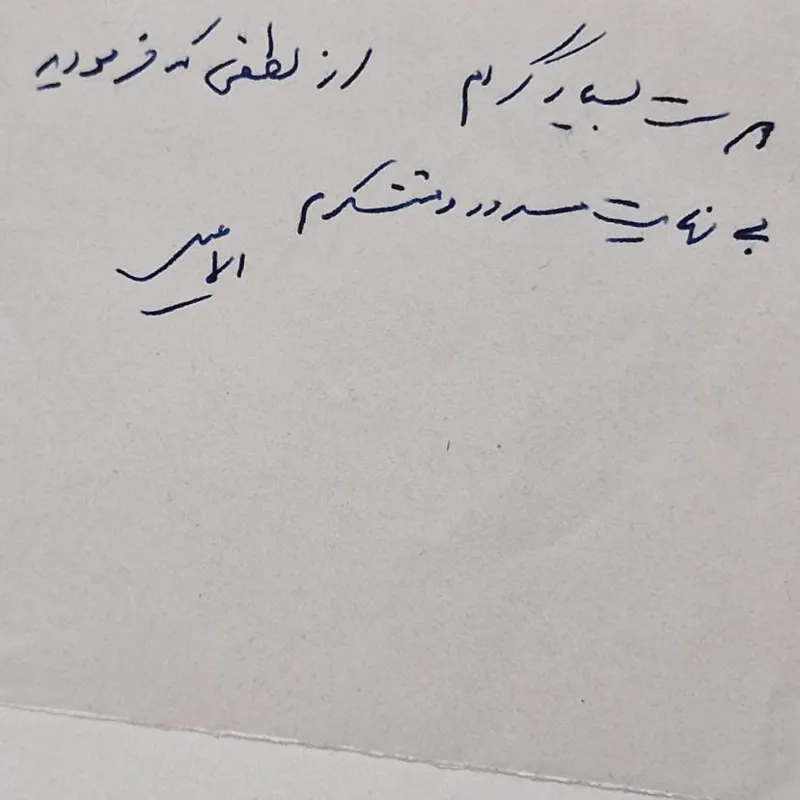 دوست بسیار گرام از لطفی که فرمودید
بی نهایت مسرور و متشکرم